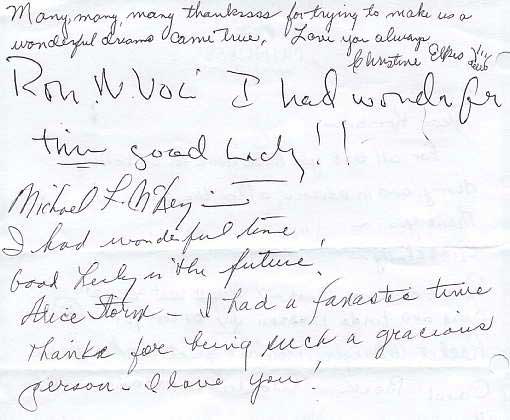 Many, many, many thanksssss for trying to make us a
wonderful dreams came true. Love you always
Christine
Ron. W. Voci I had wonderfer
time good Lucky!!
Michael L.
I had wonderful time
Good Lucky in the future!
Alice Storm - I had a fanastic time
thanks for being such a gracious
person - I love you!